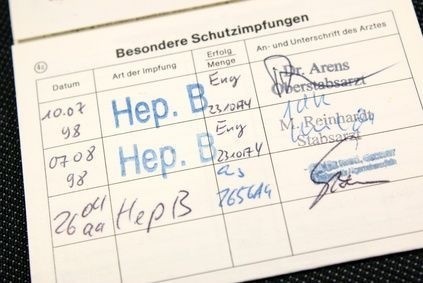 Besondere Schutzimpfungen
Datum Art der Impfung Erfolg Menge An- und Unterschrift des Arztes
10.07 98 Hep. B Eng 23107A4 Dr. Arens Oberstabsarzt
07 08 98 Hep. B Eng 23107A4 M. Reinhardt Stabsarzt
26 04 99 Hep B 2656A4